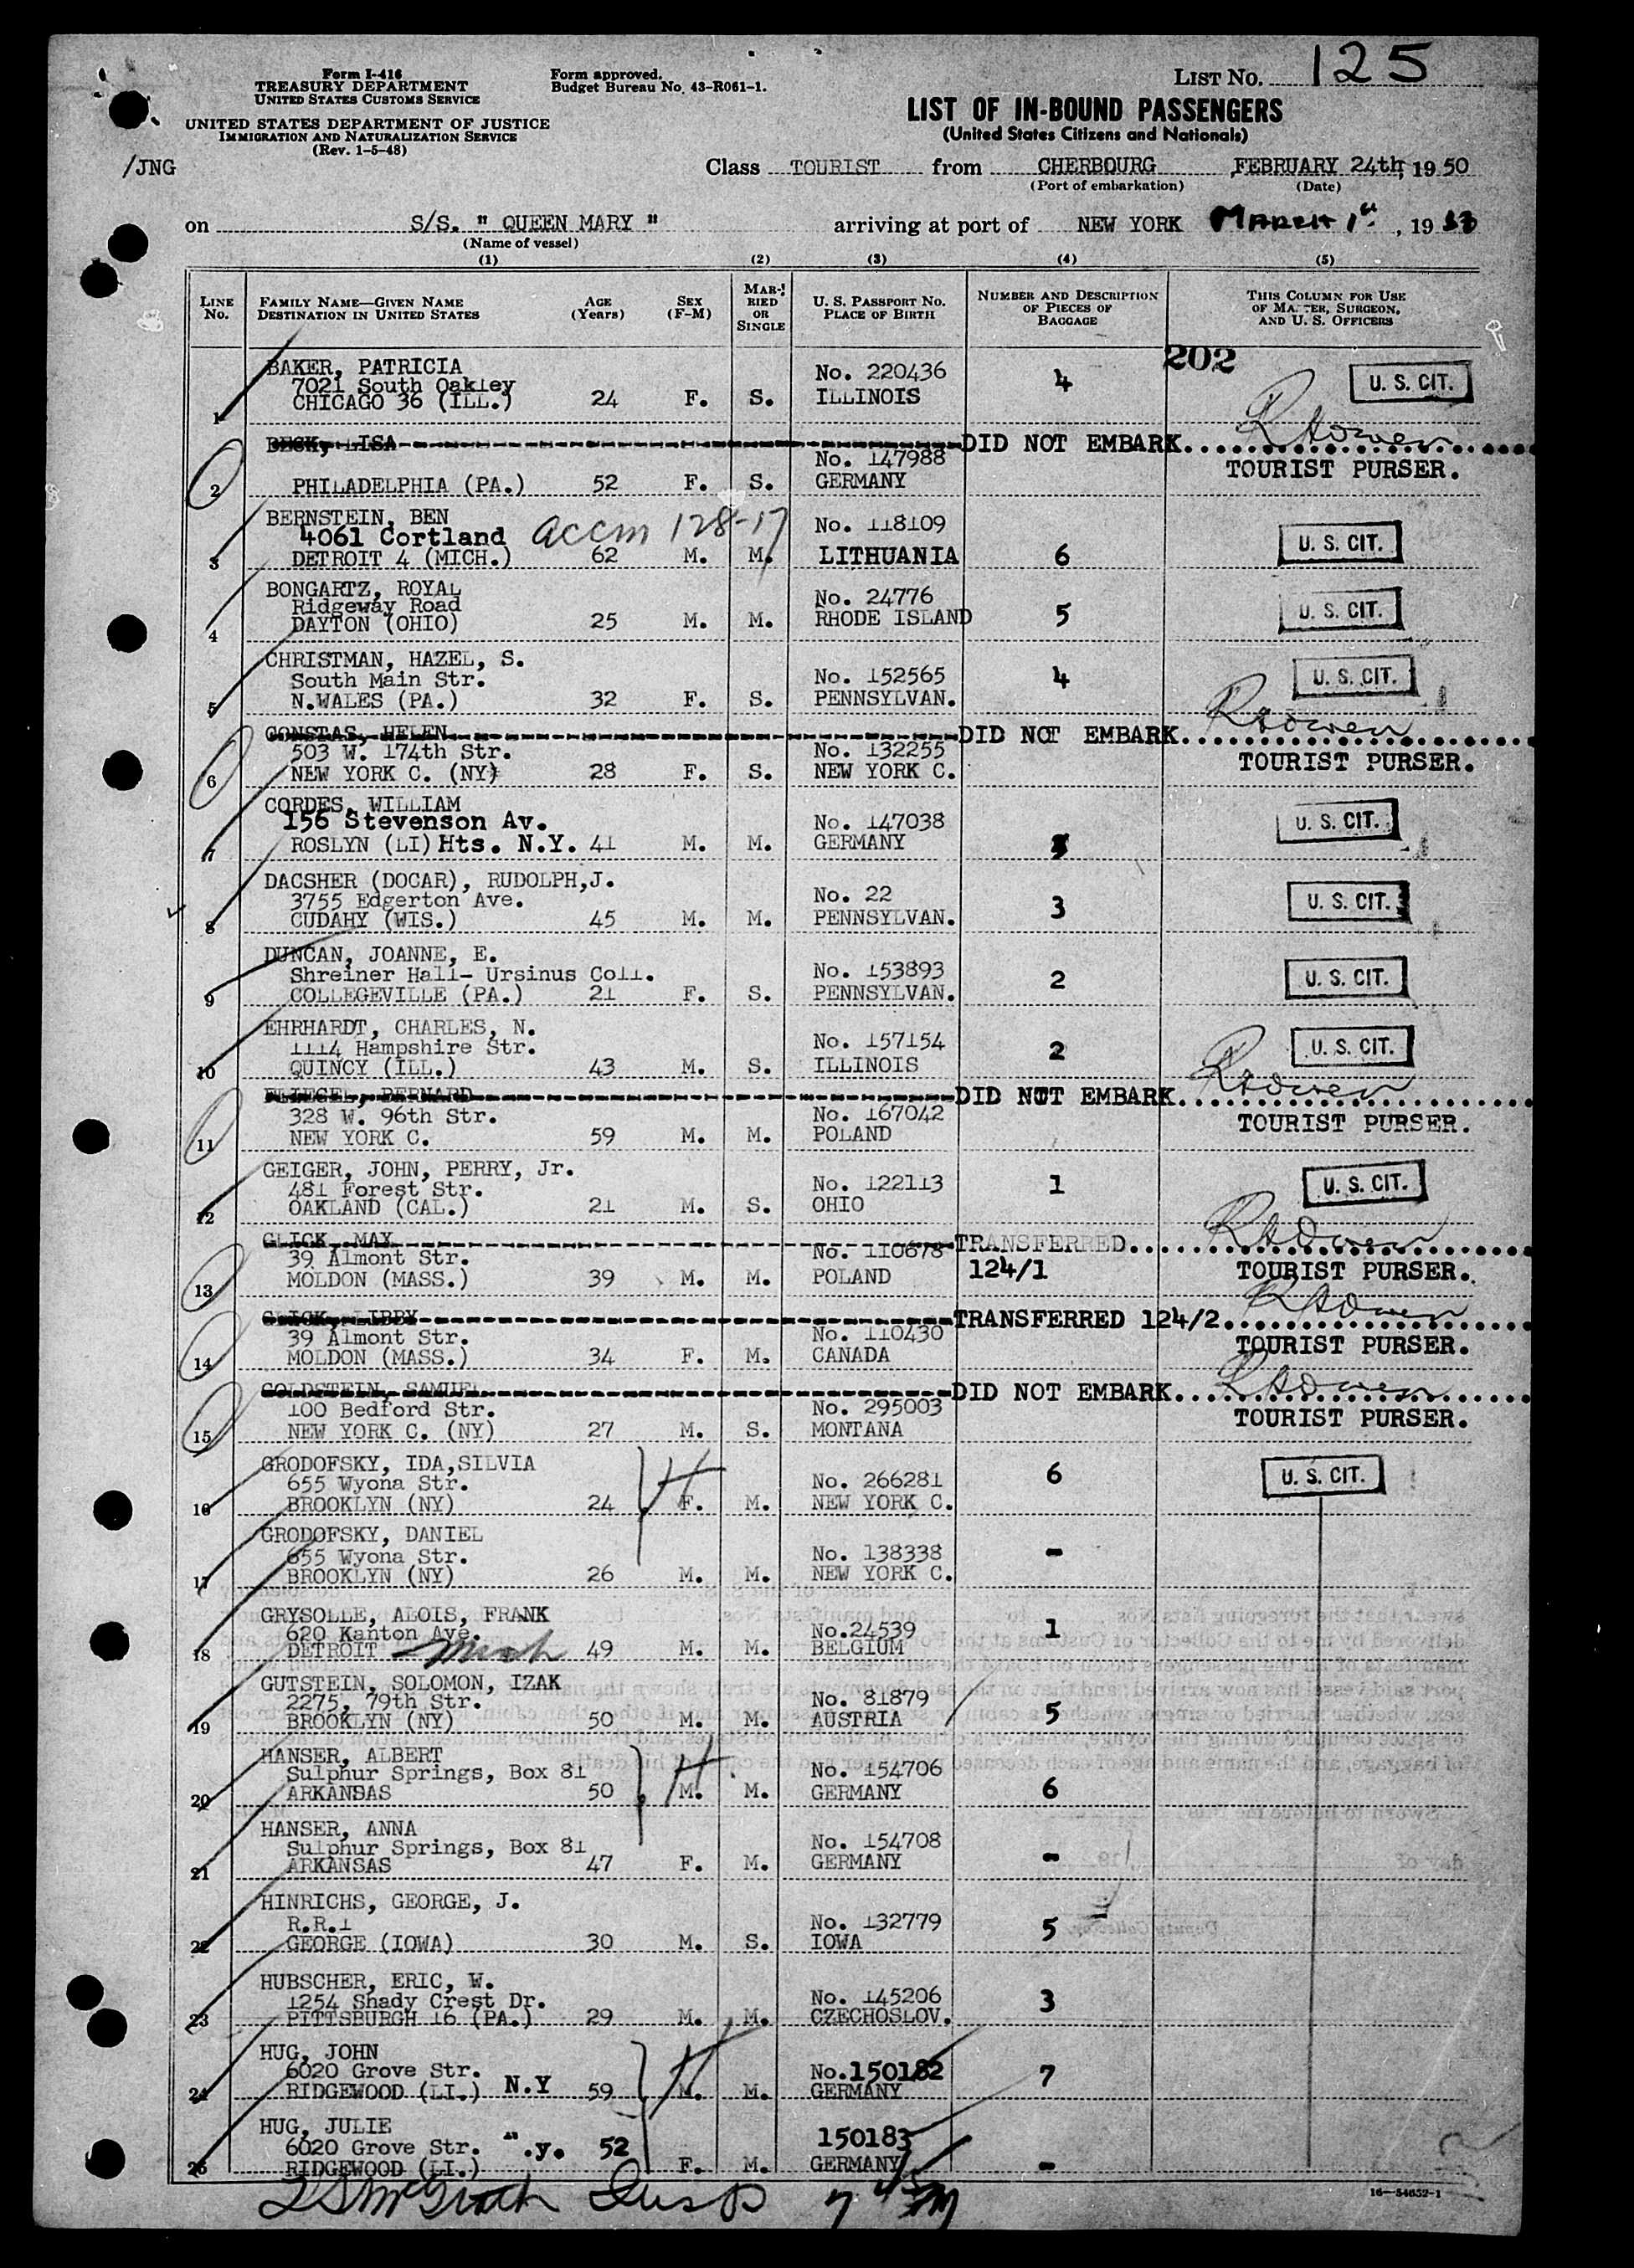 LIST NO. 125
Form I-416
TREASURY DEPARTMENT
UNITED STATES CUSTOMS SERVICE
Form approved.
Budget Bureau No. 43-R061-1.
LIST OF IN-BOUND PASSENGERS
(United States Citizens and Nationals)
UNITED STATES DEPARTMENT OF JUSTICE
IMMIGRATION AND NATURALIZATION SERVICE
(Rev. 1-5-48)
/JNG
Class TOURIST from CHERBOURG FEBRUARY 24th, 1950
(Port of embarkation) (Date)
on S/S. " QUEEN MARY " arriving at port of NEW YORK MARCH 1st, 19
(Name of vessel)
(1) (2) (3) (4) (5)
LINE No. FAMILY NAME—GIVEN NAME DESTINATION IN UNITED STATES AGE (Years) SEX (F-M) MARRIED OR SINGLE U. S. PASSPORT NO. PLACE OF BIRTH NUMBER AND DESCRIPTION OF PIECES OF BAGGAGE THIS COLUMN FOR USE OF MASTER, SURGEON, AND U. S. OFFICERS
202
BAKER, PATRICIA No. 220436 4 U. S. CIT.
7021 South Oakley
1 CHICAGO 36 (ILL.) 24 F. S. ILLINOIS
BECK, LISA DID NOT EMBARK
No. 147988 TOURIST PURSER.
2 PHILADELPHIA (PA.) 52 F. S. GERMANY
BERNSTEIN, BEN accm 128-17 No. 118109 U. S. CIT.
4061 Cortland
3 DETROIT 4 (MICH.) 62 M. M. LITHUANIA 6
BONGARTZ, ROYAL No. 24776 U. S. CIT.
Ridgeway Road
4 DAYTON (OHIO) 25 M. M. RHODE ISLAND 5
CHRISTMAN, HAZEL, S. No. 152565 4 U. S. CIT.
South Main Str.
5 N.WALES (PA.) 32 F. S. PENNSYLVAN.
CONSTAS, HELEN DID NOT EMBARK
503 W. 174th Str. No. 132255 TOURIST PURSER.
6 NEW YORK C. (NY) 28 F. S. NEW YORK C.
CORDES, WILLIAM No. 147038 U. S. CIT.
156 Stevenson Av.
7 ROSLYN (LI) Hts. N.Y. 41 M. M. GERMANY
DACSHER (DOCAR), RUDOLPH,J. No. 22 3 U. S. CIT.
3755 Edgerton Ave.
8 CUDAHY (WIS.) 45 M. M. PENNSYLVAN.
DUNCAN, JOANNE, E. No. 153893 2 U. S. CIT.
Shreiner Hall- Ursinus Coll.
9 COLLEGEVILLE (PA.) 21 F. S. PENNSYLVAN.
EHRHARDT, CHARLES, N. No. 157154 2 U. S. CIT.
1114 Hampshire Str.
10 QUINCY (ILL.) 43 M. S. ILLINOIS
BERNARD DID NOT EMBARK
328 W. 96th Str. No. 167042 TOURIST PURSER.
11 NEW YORK C. 59 M. M. POLAND
GEIGER, JOHN, PERRY, Jr. No. 122113 1 U. S. CIT.
481 Forest Str.
12 OAKLAND (CAL.) 21 M. S. OHIO
GLICK, MAX TRANSFERRED
39 Almont Str. No. 110678 124/1 TOURIST PURSER.
13 MOLDON (MASS.) 39 M. M. POLAND
GLICK, LIBBY TRANSFERRED 124/2
39 Almont Str. No. 110430 TOURIST PURSER.
14 MOLDON (MASS.) 34 F. M. CANADA
GOLDSTEIN, SAMUEL DID NOT EMBARK
100 Bedford Str. No. 295003 TOURIST PURSER.
15 NEW YORK C. (NY) 27 M. S. MONTANA
GRODOFSKY, IDA,SILVIA No. 266281 6 U. S. CIT.
655 Wyona Str. H
16 BROOKLYN (NY) 24 F. M. NEW YORK C.
GRODOFSKY, DANIEL No. 138338 -
655 Wyona Str.
17 BROOKLYN (NY) 26 M. M. NEW YORK C.
GRYSOLLE, ALOIS, FRANK No.24539 1
620 Kanton Ave.
18 DETROIT - Mich 49 M. M. BELGIUM
GUTSTEIN, SOLOMON, IZAK No. 81879 5
2275, 79th Str.
19 BROOKLYN (NY) 50 M. M. AUSTRIA
HANSER, ALBERT No. 154706 6
Sulphur Springs, Box 81 H
20 ARKANSAS 50 M. M. GERMANY
HANSER, ANNA No. 154708 -
Sulphur Springs, Box 81
21 ARKANSAS 47 F. M. GERMANY
HINRICHS, GEORGE, J. No. 132779 5
R.R.1
22 GEORGE (IOWA) 30 M. S. IOWA
HUBSCHER, ERIC, W. No. 145206 3
1254 Shady Crest Dr.
23 PITTSBURGH 16 (PA.) 29 M. M. CZECHOSLOV.
HUG, JOHN No.150182 7
6020 Grove Str. H
24 RIDGEWOOD (LI.) N.Y 59 M. M. GERMANY
HUG, JULIE 150183 -
6020 Grove Str. .y. 52
25 RIDGEWOOD (LI.) F. M. GERMANY
16—54652-1